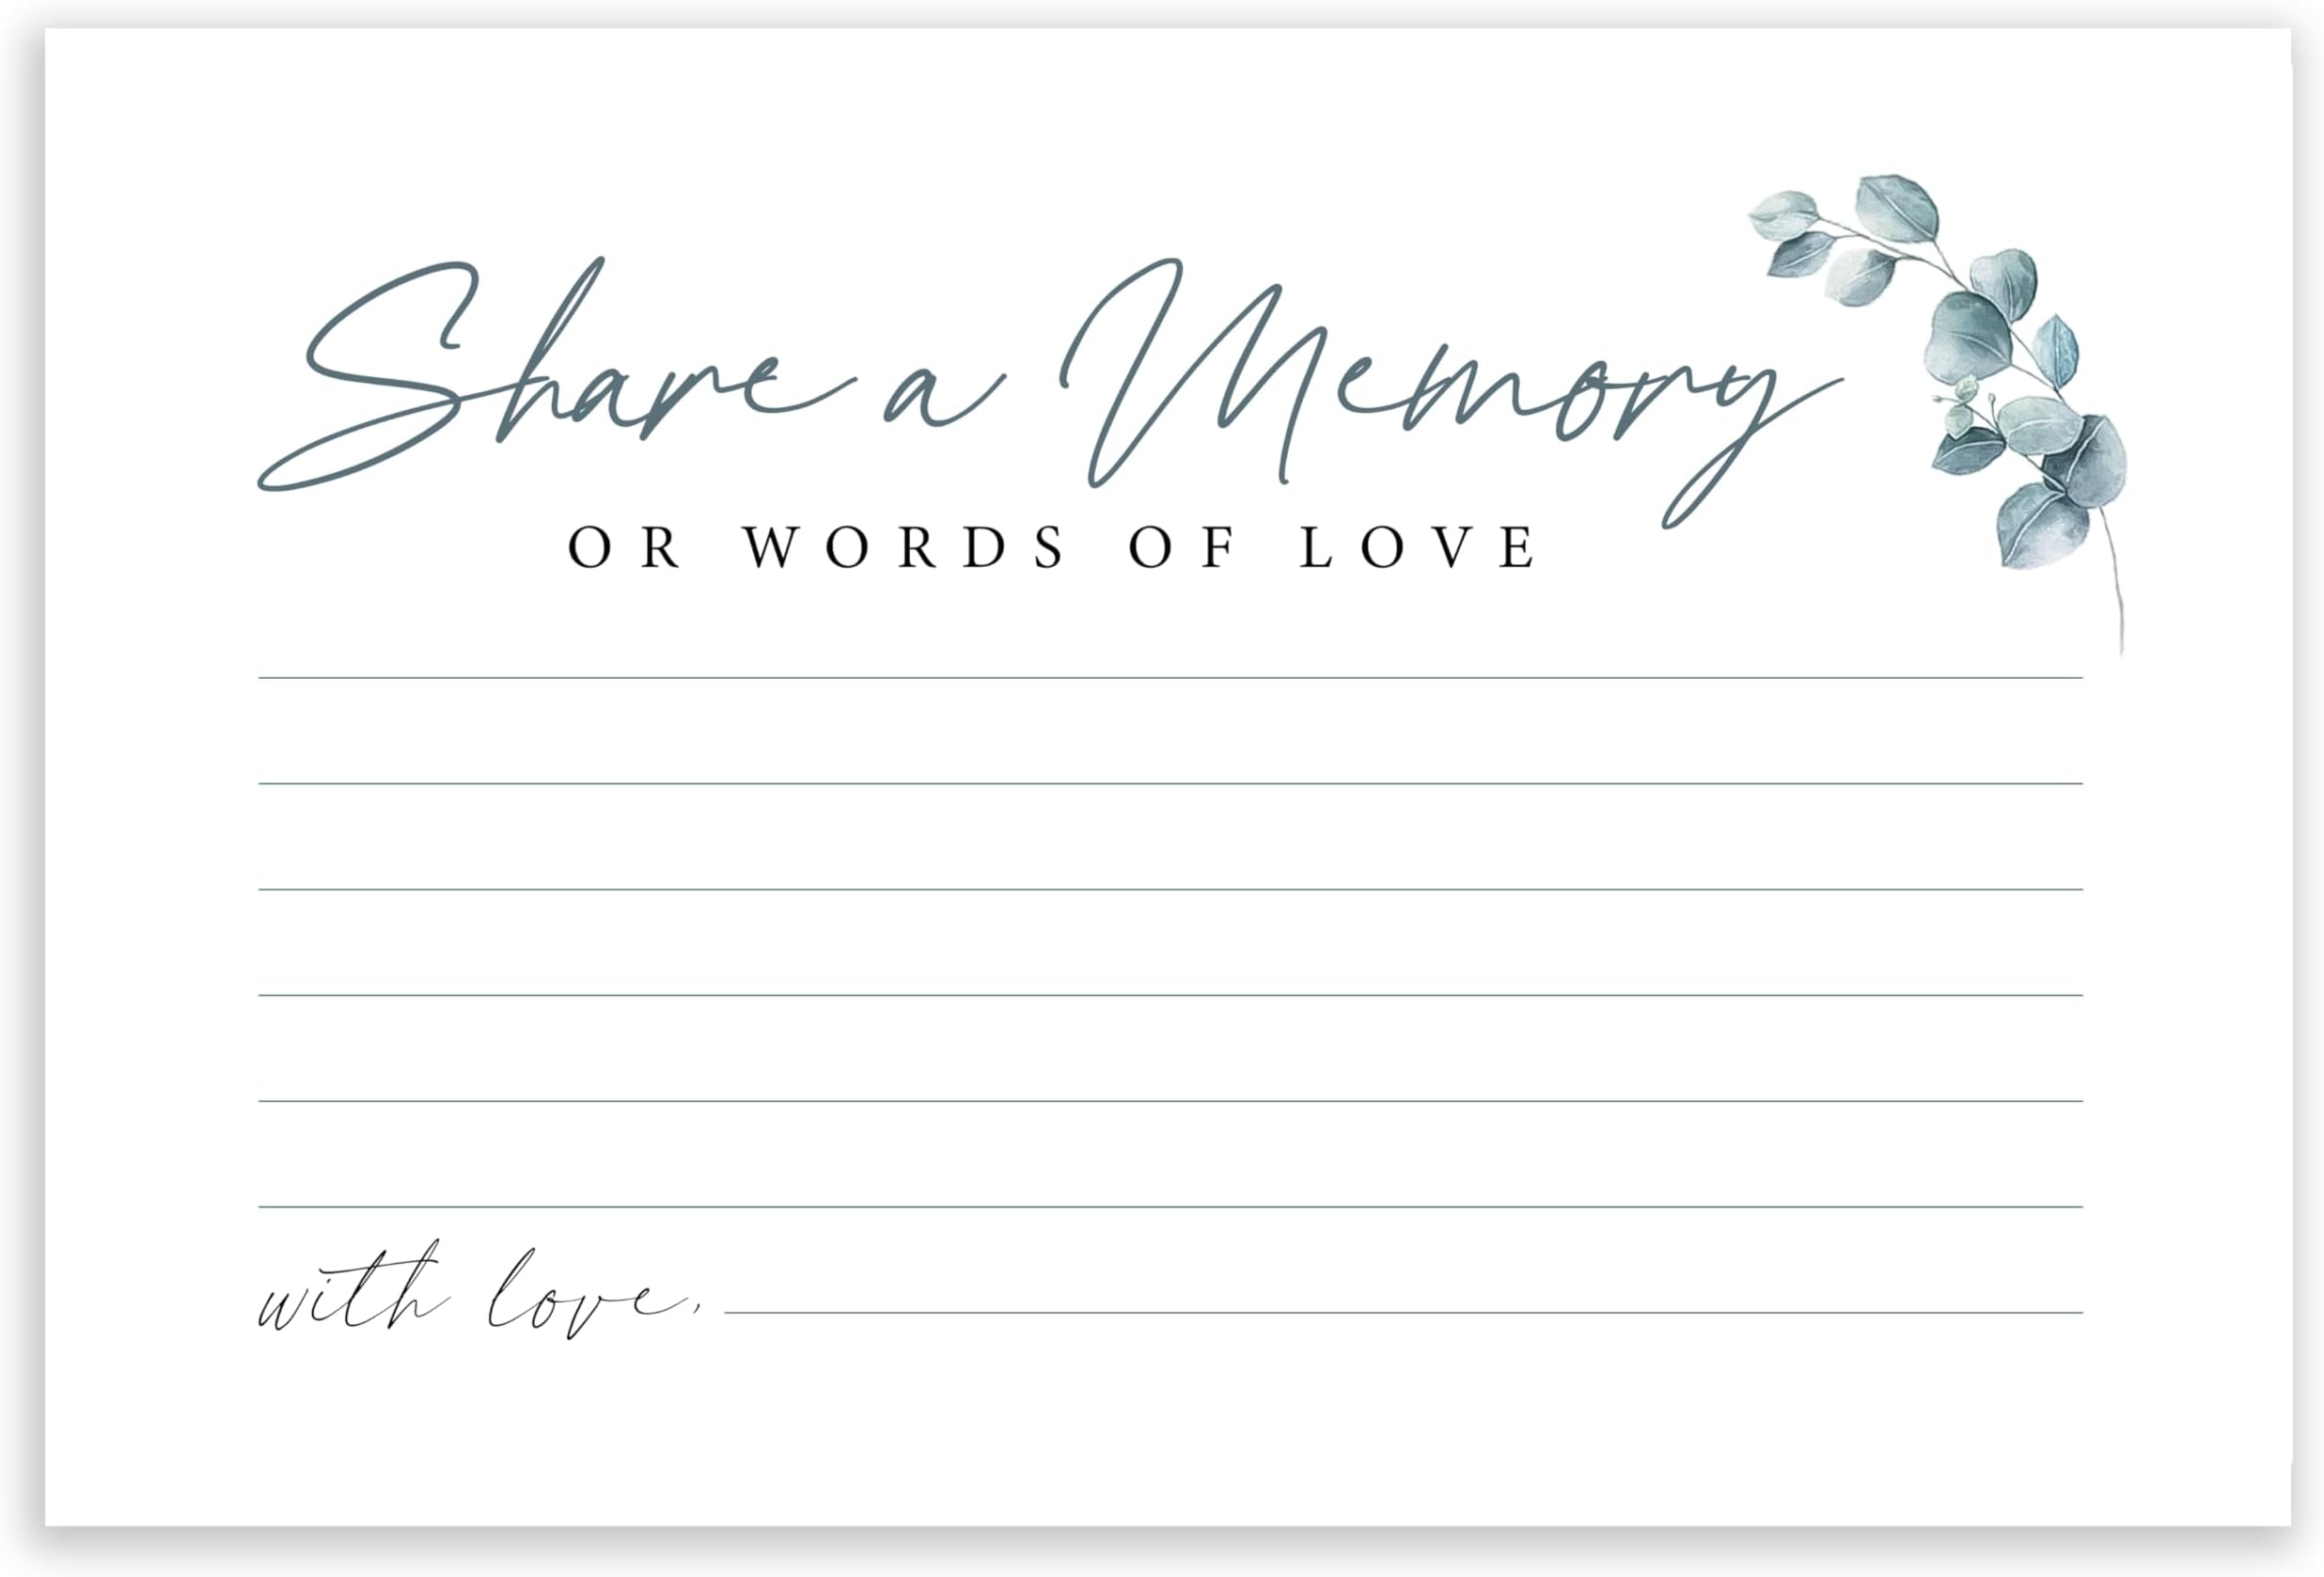 Share a Memory
OR WORDS OF LOVE
with love,